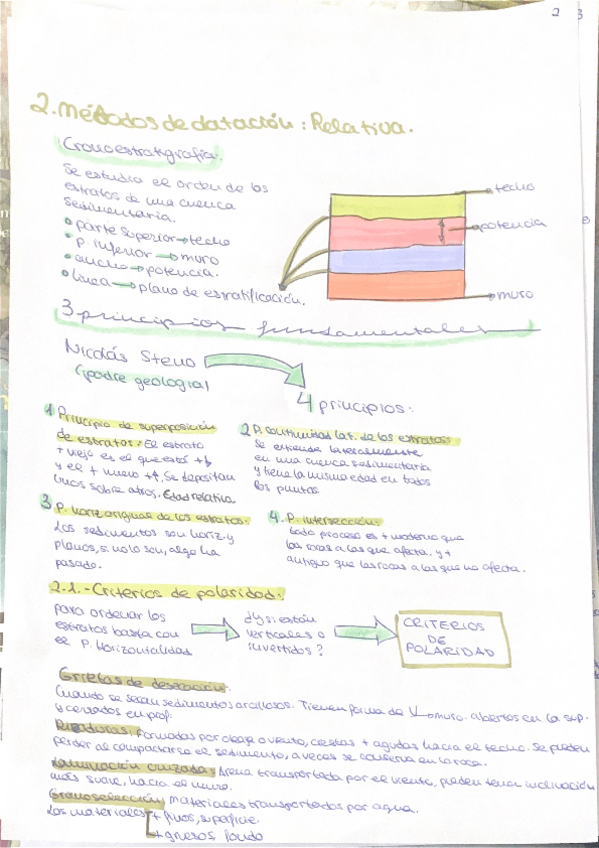 2 3
2. Métodos de datación: Relativa.
Cronoestratigrafía:
Se estudia el orden de los
estratos de una cuenca
sedimentaria.
• parte superior → techo
• p. inferior → muro
• ancho → potencia.
• línea → plano de estratificación.
techo
potencia
muro
3 principios fundamentales
Nicolás Steno
(padre geología)
4 principios:
1 Principio de superposición
de estratos: El estrato
+ viejo es el que está +↓
y el + nuevo +↑, se depositan
unos sobre otros. Edad relativa
2 P. continuidad lat. de los estratos:
Se extiende lateralmente
en una cuenca sedimentaria
y tiene la misma edad en todos
los puntos
3 P. horiz original de los estratos:
Los sedimentos son horiz y
planos, si no lo son, algo ha
pasado.
4. P. intersección:
todo proceso es + moderno que
las rocas a las que afecta. y +
antiguo que las rocas a las que no afecta.
2.1.- Criterios de polaridad:
para ordenar los
estratos basta con
el P. Horizontalidad
¿Y si están
verticales o
invertidos?
CRITERIOS
DE
POLARIDAD
Grietas de desecación:
Cuando se secan sedimentos arcillosos. Tienen forma de V→muro. abiertos en la sup.
y cerrados en prof.
Rizaduras: Formadas por oleaje o viento, crestas + agudas hacia el techo. Se pueden
perder al compactarse el sedimento, a veces se conserva en la roca.
Laminación cruzada: Arena transportada por el viento, pueden tener inclinación
más suave, hacia el muro.
Granoselección: materiales transportados por agua.
Los materiales + finos, superficie.
+ gruesos fondo